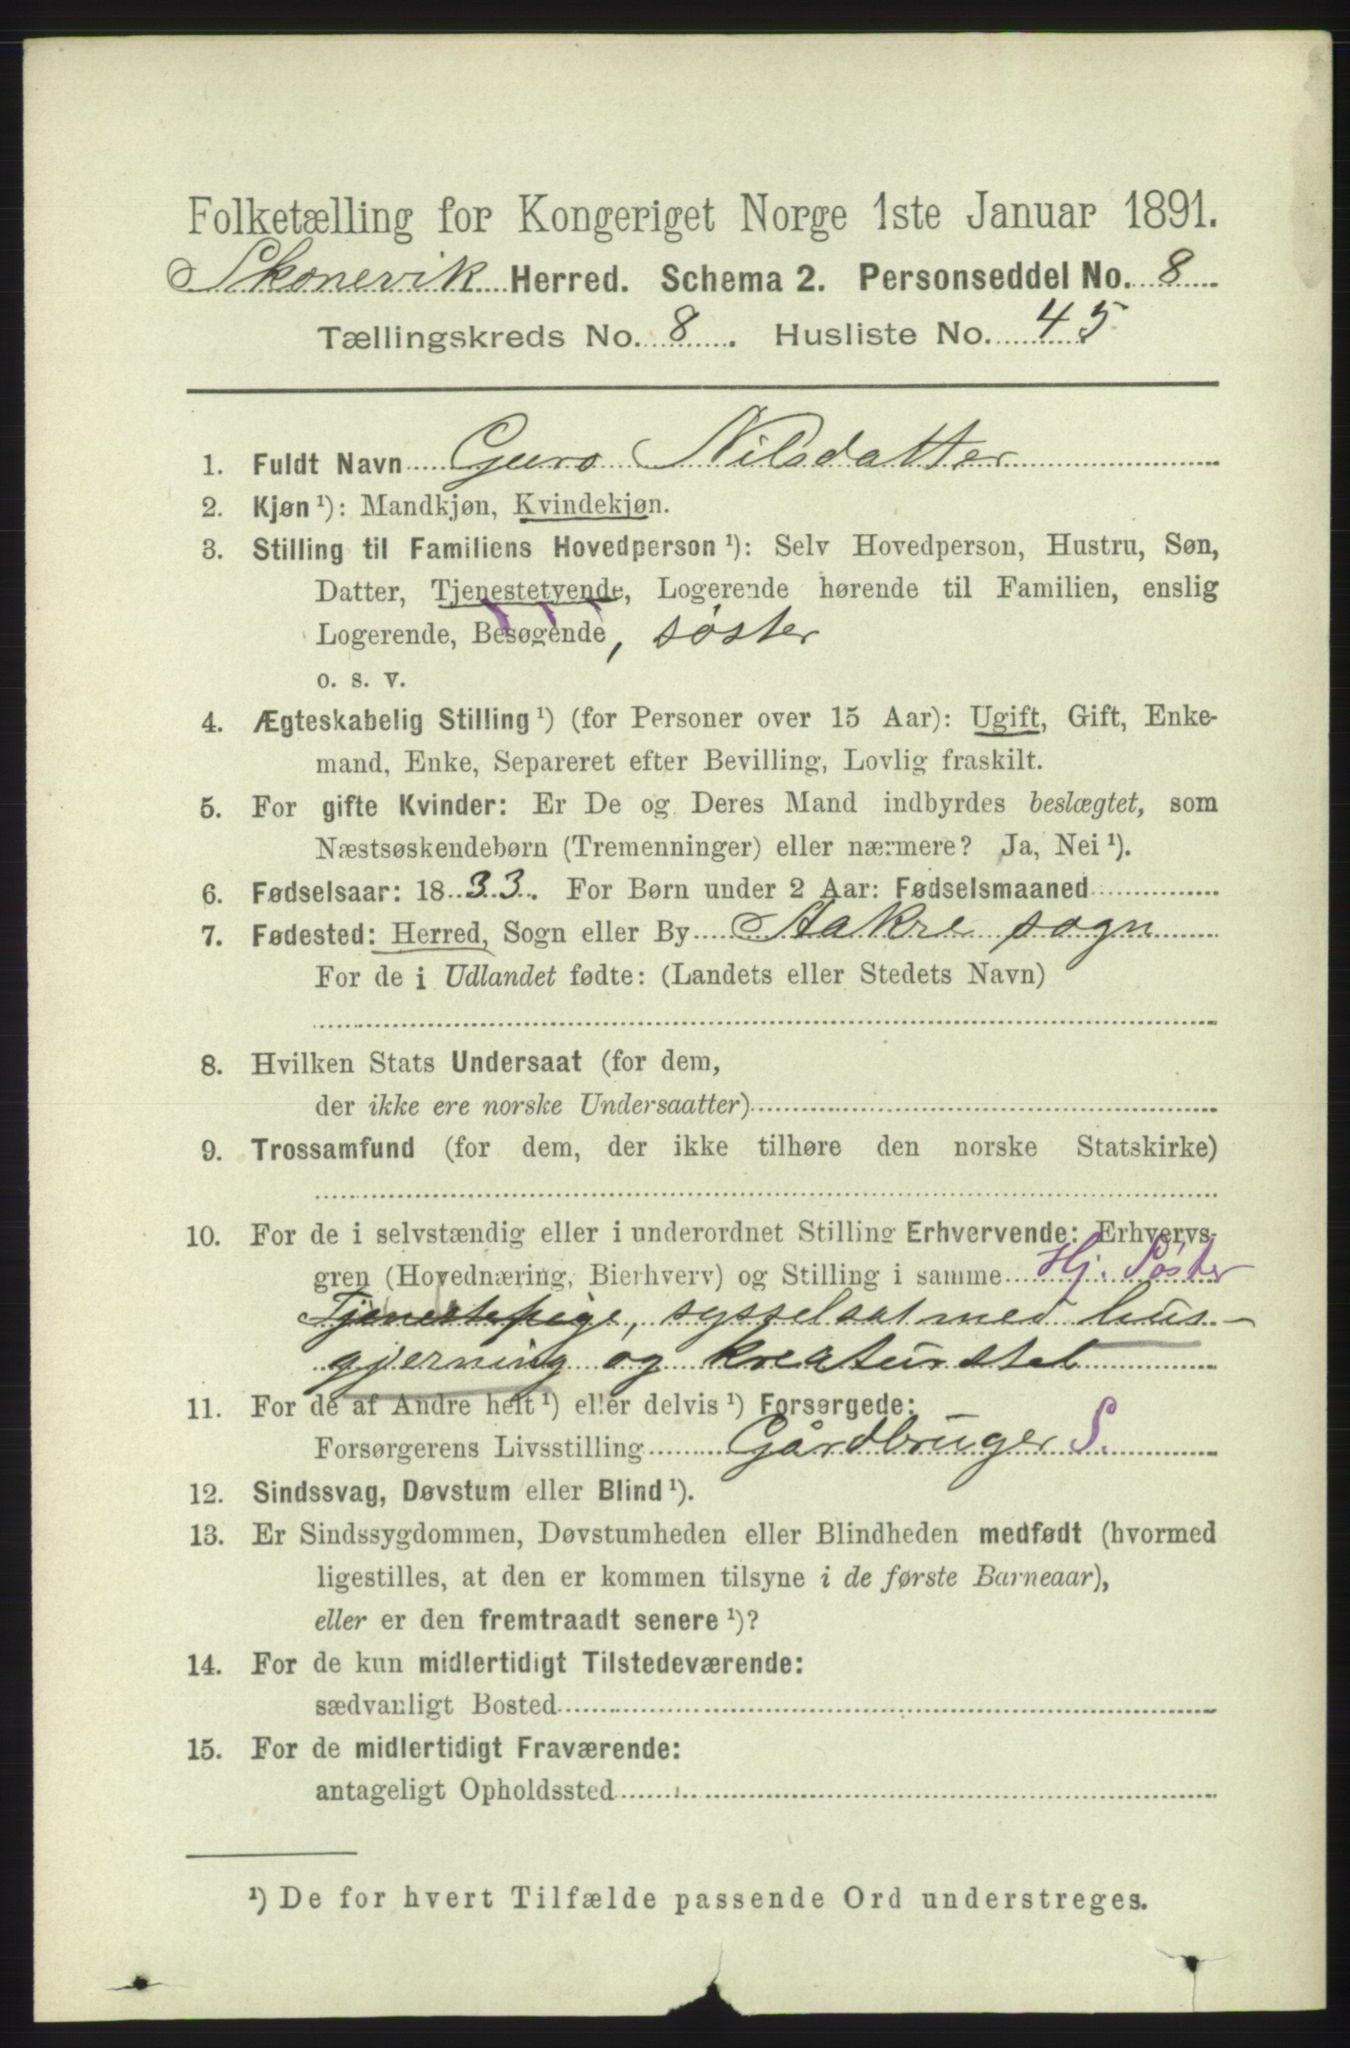 Folketælling for Kongeriget Norge 1ste Januar 1891.
Skonevik Herred. Schema 2. Personseddel No. 8
Tællingskreds No. 8. Husliste No. 45
1. Fuldt Navn Guro Nilsdatter
2. Kjøn ¹): Mandkjøn, Kvindekjøn.
3. Stilling til Familiens Hovedperson ¹): Selv Hovedperson, Hustru, Søn,
Datter, Tjenestetyende, Logerende hørende til Familien, enslig
Logerende, Besøgende, søster
o. s. v.
4. Ægteskabelig Stilling ¹) (for Personer over 15 Aar): Ugift, Gift, Enke-
mand, Enke, Separeret efter Bevilling, Lovlig fraskilt.
5. For gifte Kvinder: Er De og Deres Mand indbyrdes beslægtet, som
Næstsøskendebørn (Tremenninger) eller nærmere? Ja, Nei ¹).
6. Fødselsaar: 1833. For Børn under 2 Aar: Fødselsmaaned
7. Fødested: Herred, Sogn eller By Aakre sogn
For de i Udlandet fødte: (Landets eller Stedets Navn)
8. Hvilken Stats Undersaat (for dem,
der ikke ere norske Undersaatter)
9. Trossamfund (for dem, der ikke tilhøre den norske Statskirke)
10. For de i selvstændig eller i underordnet Stilling Erhvervende: Erhvervs-
gren (Hovednæring, Bierhverv) og Stilling i samme Hj. Søster
Tjenestepige, sysselsat med hus-
gjerning og kreaturstel
11. For de af Andre helt ¹) eller delvis ¹) Forsørgede:
Forsørgerens Livsstilling Gårdbruger S.
12. Sindssvag, Døvstum eller Blind ¹).
13. Er Sindssygdommen, Døvstumheden eller Blindheden medfødt (hvormed
ligestilles, at den er kommen tilsyne i de første Barneaar),
eller er den fremtraadt senere ¹)?
14. For de kun midlertidigt Tilstedeværende:
sædvanligt Bosted
15. For de midlertidigt Fraværende:
antageligt Opholdssted
¹) De for hvert Tilfælde passende Ord understreges.